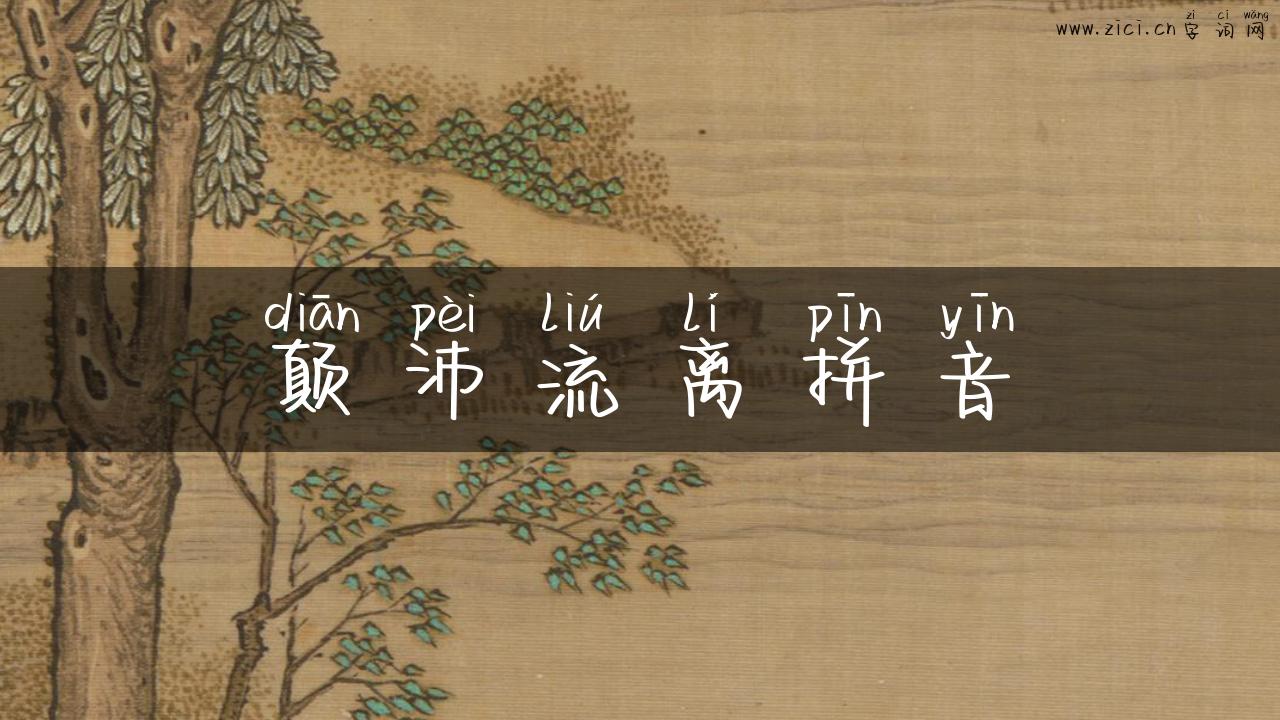 zì cí wǎng
www.zici.cn字词网
diān pèi liú lí pīn yīn
颠沛流离拼音